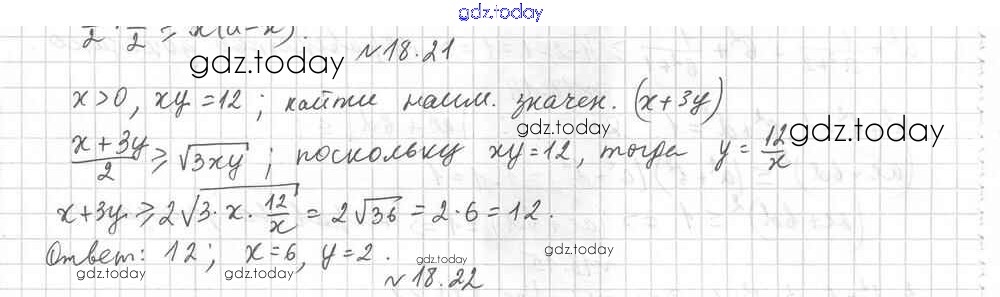 gdz.today
x/2 · x/2 ≥ x(a-x).
gdz.today
№18.21
x>0, xy=12; найти наим. значен. (x+3y)
gdz.today
(x+3y)/2 ≥ √(3xy); поскольку xy=12, тогда y=12/x
gdz.today
x+3y ≥ 2√(3·x·12/x) = 2√36 = 2·6 = 12.
gdz.today
Ответ: 12; x=6, y=2.
gdz.today
gdz.today
gdz.today
№18.22